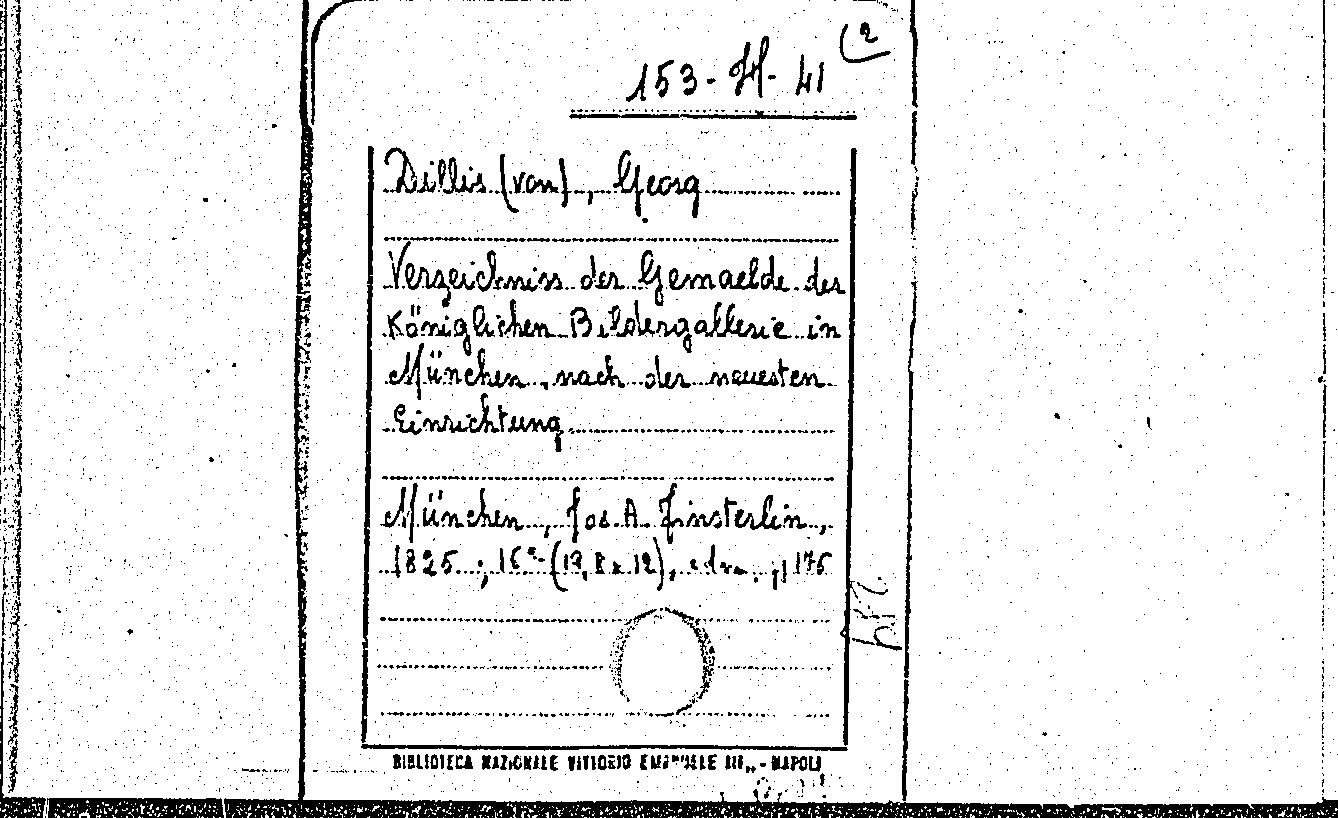 (2
153-H-41
Dillis (von), Georg
Verzeichniss der Gemaelde der
Königlichen Bildergallerie in
München, nach der neuesten
Einrichtung
München, Jos. A. Finsterlin,
1825; 16°-(19,8 x 12), , 176
BIBLIOTECA NAZIONALE VITTORIO EMANUELE III,, - NAPOLI